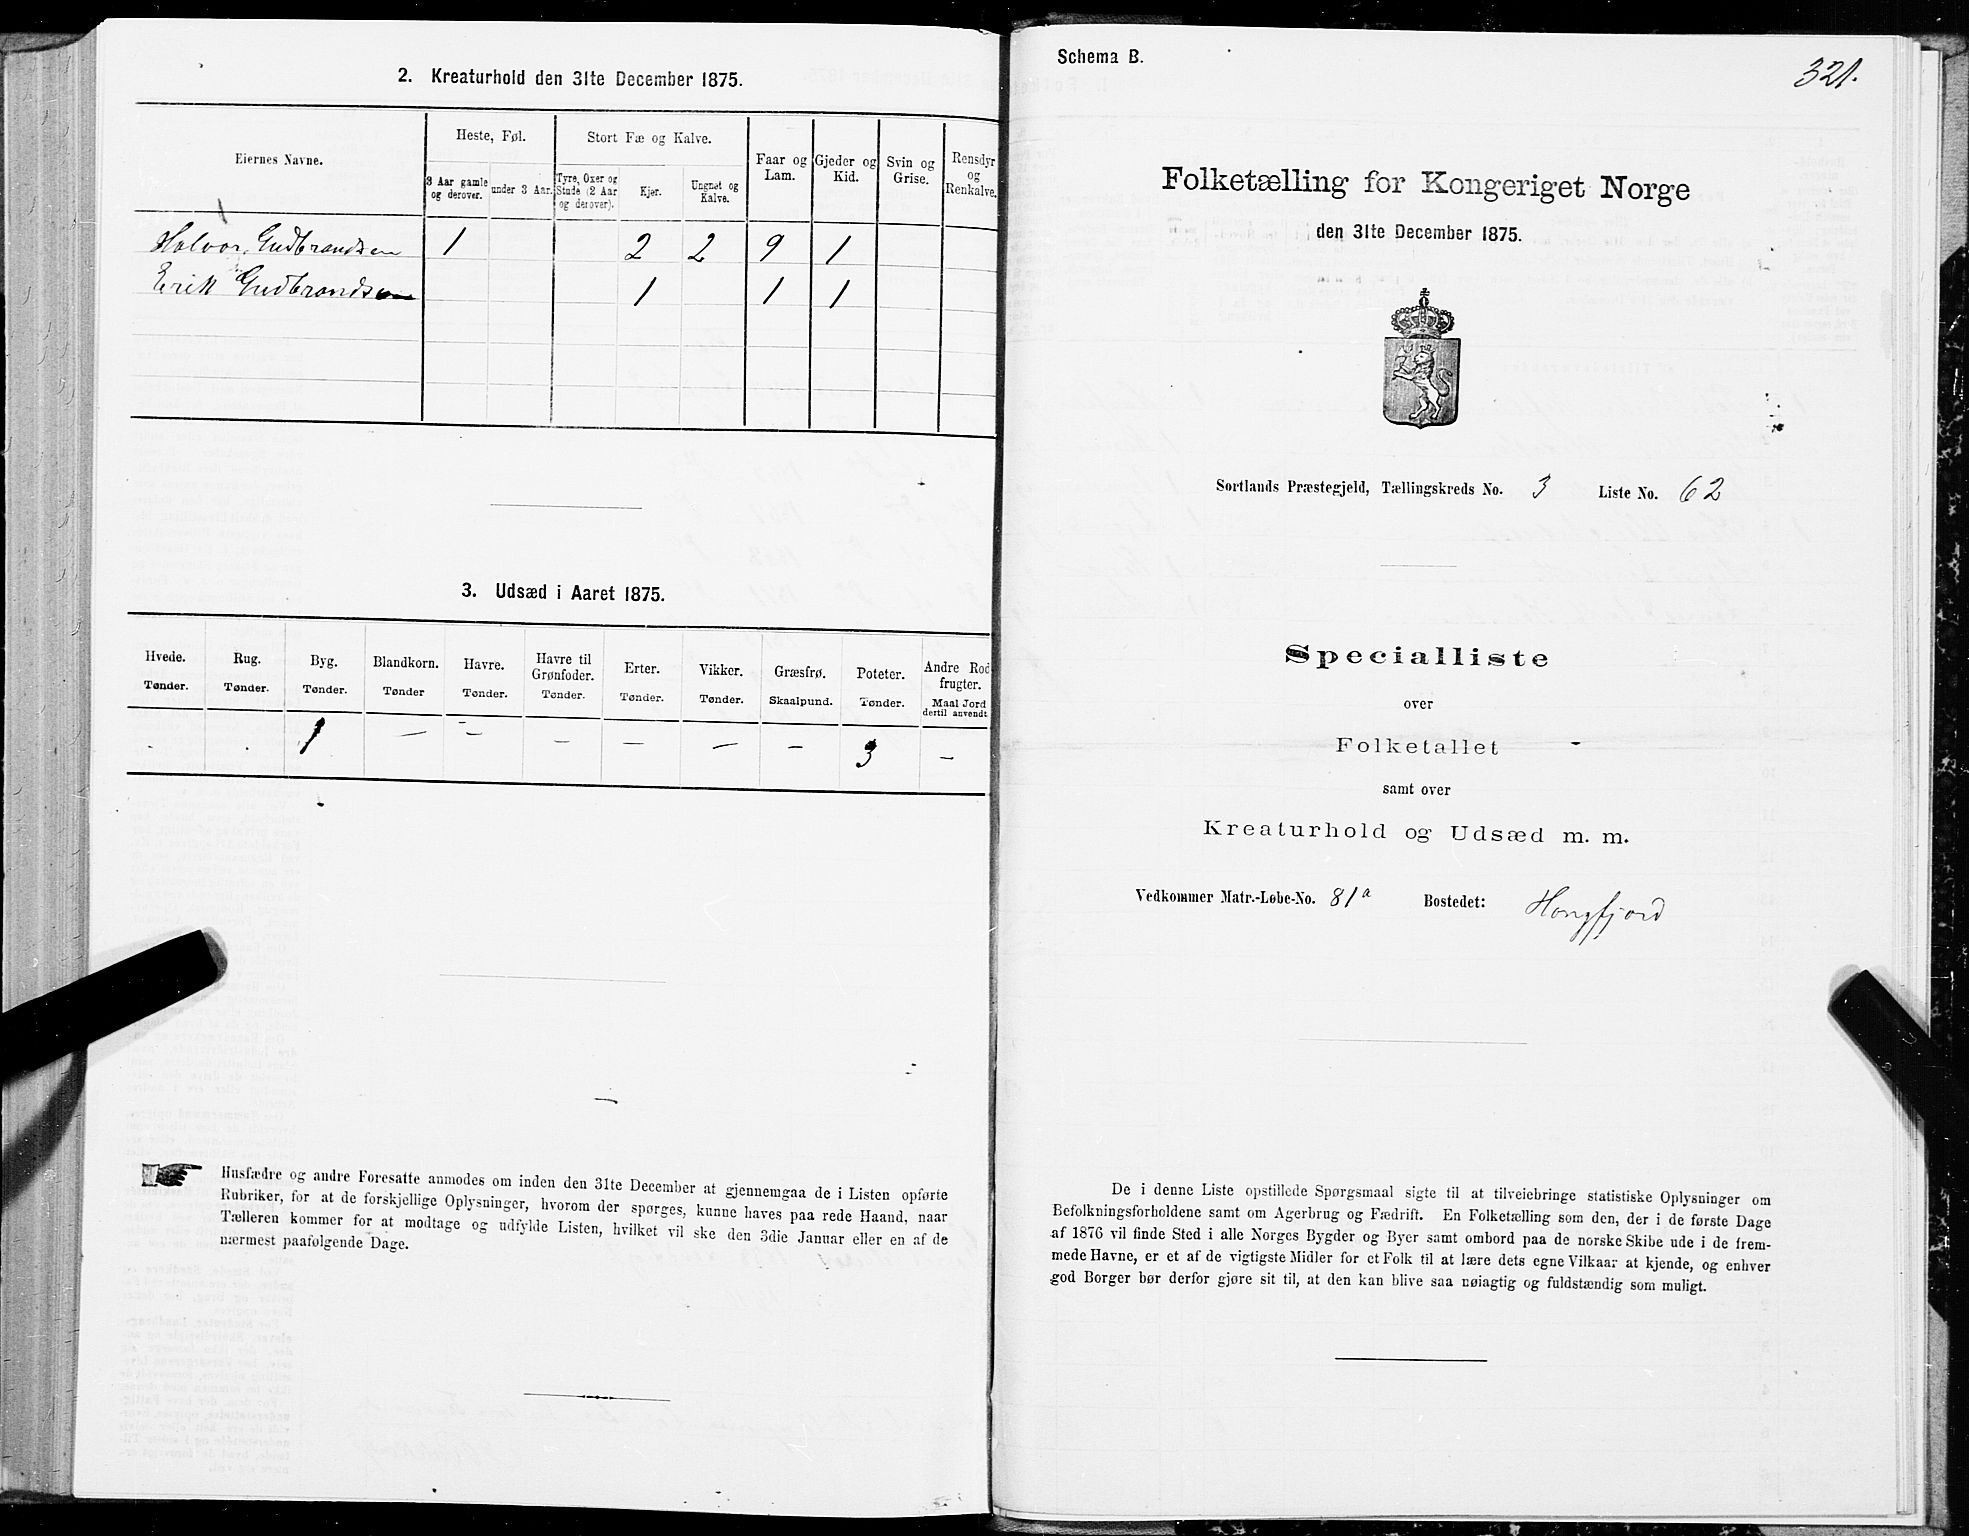 2. Kreaturhold den 31te December 1875.
Eiernes Navne.
Heste, Føl.
Stort Fæ og Kalve.
Faar og Lam.
Gjeder og Kid.
Svin og Grise.
Rensdyr og Renkalve.
3 Aar gamle og derover.
under 3 Aar.
Tyre, Oxer og Stude (2 Aar og derover).
Kjør.
Ungnøt og Kalve.
Halvor Gudbrandsen 1 2 2 9 1
Erik Gudbrandsen 1 1 1
3. Udsæd i Aaret 1875.
Hvede. Rug. Byg. Blandkorn. Havre. Havre til Grønfoder. Erter. Vikker. Græsfrø. Poteter. Andre Rodfrugter.
Tønder. Tønder. Tønder. Tønder Tønder. Tønder. Tønder. Tønder. Skaalpund. Tønder. Maal Jord dertil anvendt
. . 1 — — — — — — 3 —
Husfædre og andre Foresatte anmodes om inden den 31te December at gjennemgaa de i Listen opførte
Rubriker, for at de forskjellige Oplysninger, hvorom der spørges, kunne haves paa rede Haand, naar
Tælleren kommer for at modtage og udfylde Listen, hvilket vil ske den 3die Januar eller en af de
nærmest paafølgende Dage.
Schema B.
321.
Folketælling for Kongeriget Norge
den 31te December 1875.
Sortlands Præstegjeld, Tællingskreds No. 3 Liste No. 62
Specialliste
over
Folketallet
samt over
Kreaturhold og Udsæd m. m.
Vedkommer Matr.-Løbe-No. 81a Bostedet: Hongfjord
De i denne Liste opstillede Spørgsmaal sigte til at tilveiebringe statistiske Oplysninger om
Befolkningsforholdene samt om Agerbrug og Fædrift. En Folketælling som den, der i de første Dage
af 1876 vil finde Sted i alle Norges Bygder og Byer samt ombord paa de norske Skibe ude i de frem-
mede Havne, er et af de vigtigste Midler for et Folk til at lære dets egne Vilkaar at kjende, og enhver
god Borger bør derfor gjøre sit til, at den kan blive saa nøiagtig og fuldstændig som muligt.